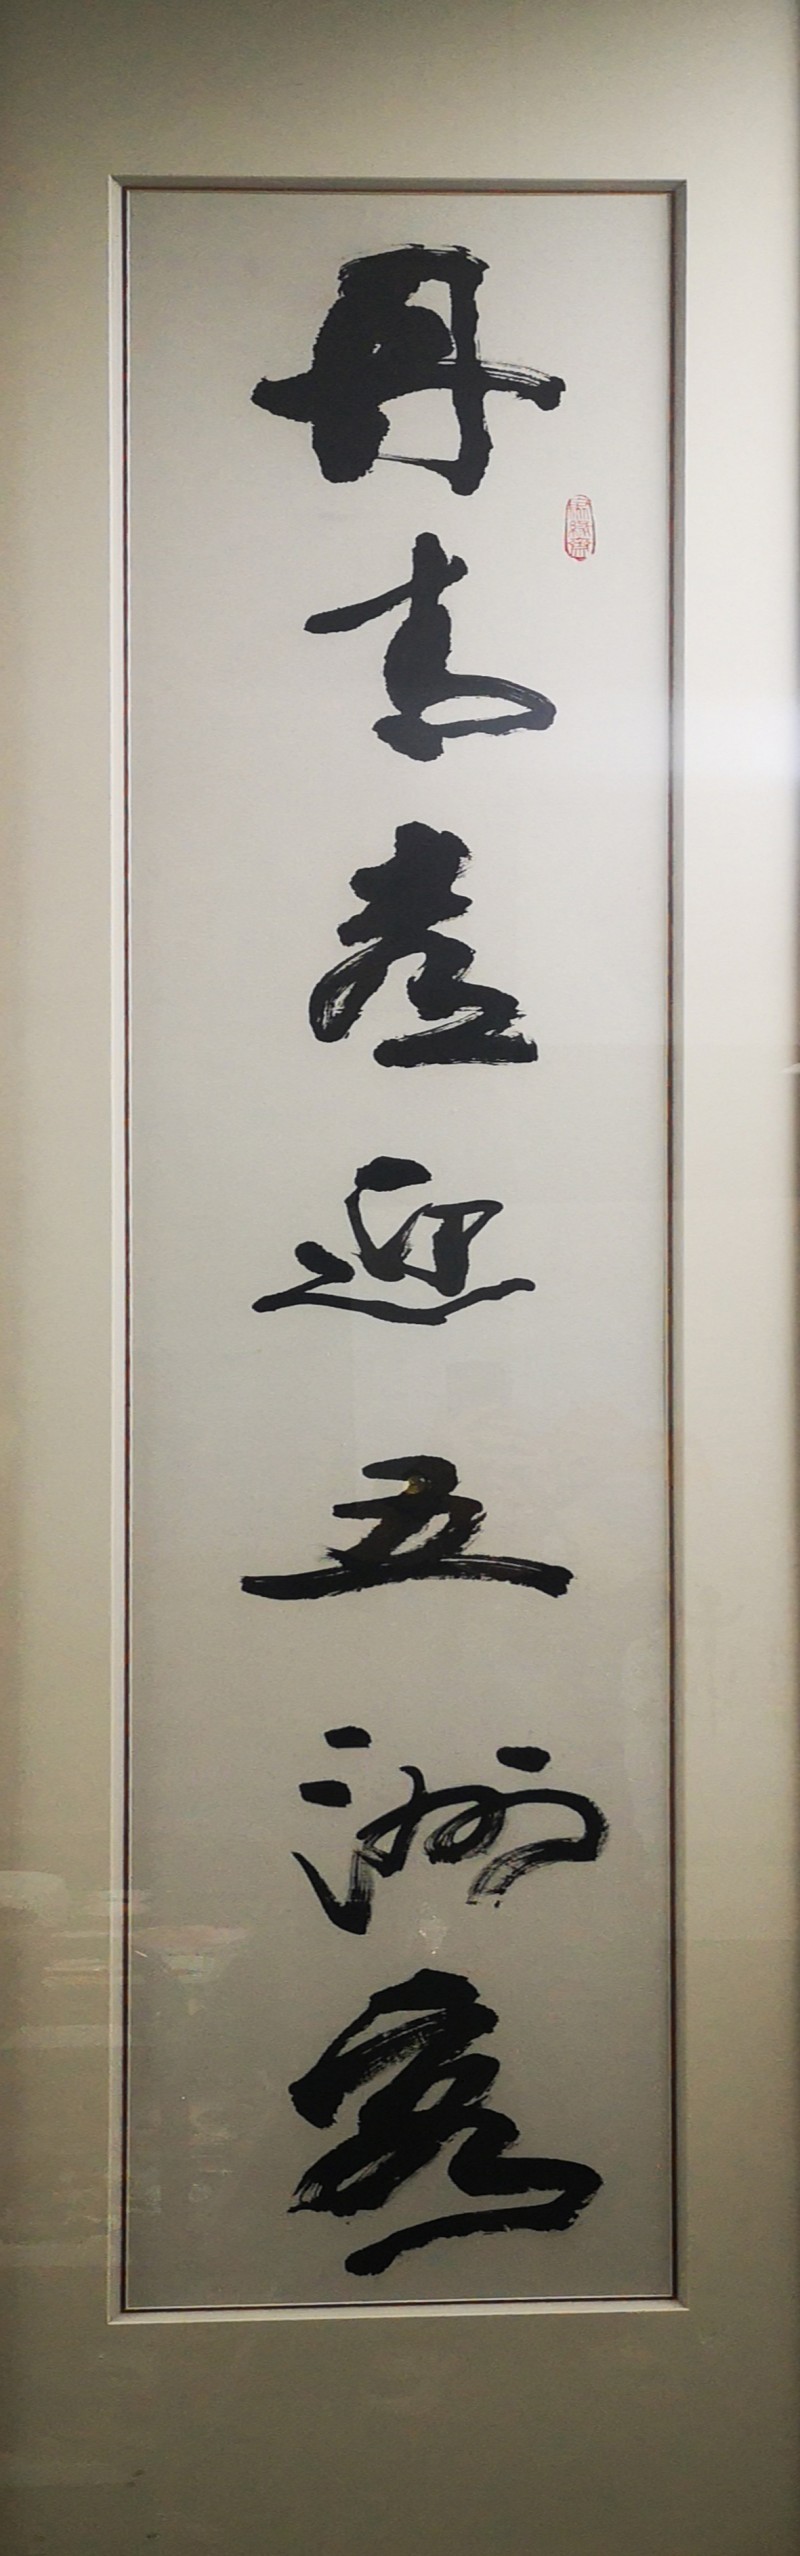 丹青喜迎五洲客